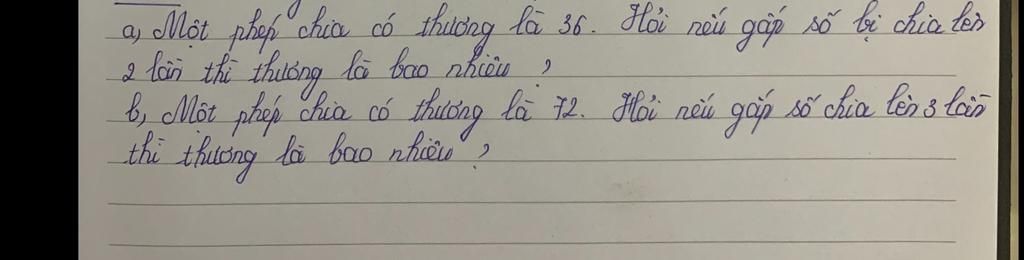 a, Một phép chia có thương là 36. Hỏi nếu gấp số bị chia lên
2 lần thì thương là bao nhiêu ?
b, Một phép chia có thương là 72. Hỏi nếu gấp số chia lên 3 lần
thì thương là bao nhiêu ?